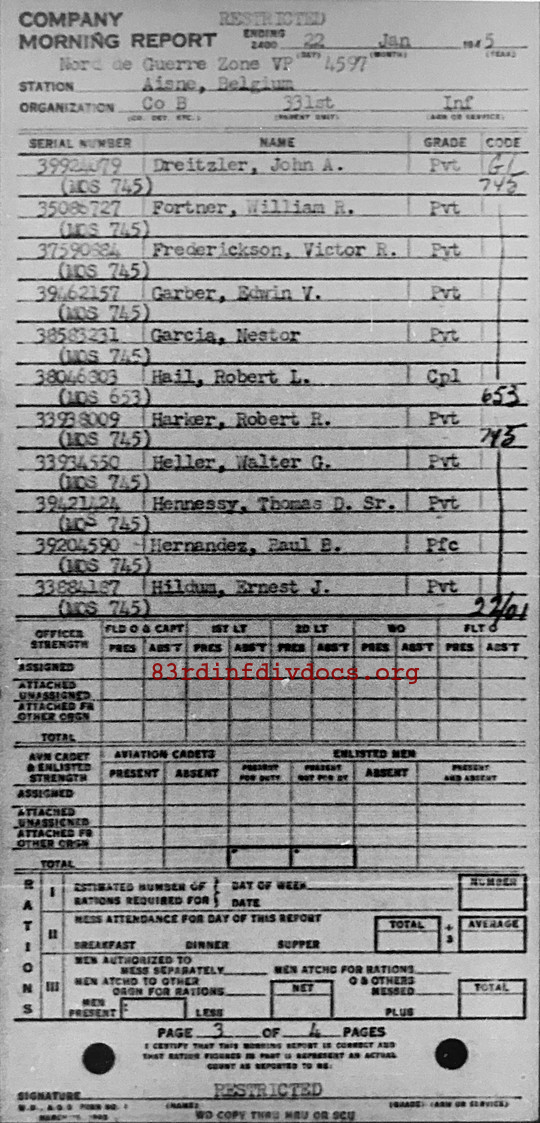 COMPANY RESTRICTED
MORNING REPORT ENDING 2400 22 Jan 1945
(DAY) (MONTH) (YEAR)
Nord de Guerre Zone VP 4597
STATION Aisne, Belgium
ORGANIZATION Co B 331st Inf
(CO. DET. ETC.) (PARENT UNIT) (ARM OR SERVICE)
SERIAL NUMBER NAME GRADE CODE
39924079 Dreitzler, John A. Pvt
(MOS 745) 745
35086727 Fortner, William R. Pvt
(MOS 745)
37590684 Frederickson, Victor R. Pvt
(MOS 745)
39462157 Garber, Edwin V. Pvt
(MOS 745)
38583231 Garcia, Nestor Pvt
(MOS 745)
38046303 Hail, Robert L. Cpl
(MOS 653) 653
33938009 Harker, Robert R. Pvt
(MOS 745) 745
33934550 Heller, Walter G. Pvt
(MOS 745)
39421424 Hennessy, Thomas D. Sr. Pvt
(MOS 745)
39204590 Hernandez, Paul B. Pfc
(MOS 745)
33884187 Hildum, Ernest J. Pvt
(MOS 745)
OFFICER STRENGTH FLD O & CAPT 1ST LT 2D LT WO FLT O
PRES ABS'T PRES ABS'T PRES ABS'T PRES ABS'T PRES ABS'T
ASSIGNED
83rdinfdivdocs.org
ATTACHED UNASSIGNED
ATTACHED FR OTHER ORGN
TOTAL
AVN CADET & ENLISTED STRENGTH AVIATION CADETS ENLISTED MEN
PRESENT ABSENT PRESENT FOR DUTY PRESENT NOT FOR DY ABSENT PRESENT AND ABSENT
ASSIGNED
ATTACHED UNASSIGNED
ATTACHED FR OTHER ORGN
TOTAL
RATIONS
I ESTIMATED NUMBER OF RATIONS REQUIRED FOR DAY OF WEEK DATE NUMBER
II MESS ATTENDANCE FOR DAY OF THIS REPORT TOTAL ÷ 3 AVERAGE
BREAKFAST DINNER SUPPER
III MEN AUTHORIZED TO MESS SEPARATELY MEN ATCHD FOR RATIONS
MEN ATCHD TO OTHER ORGN FOR RATIONS NET O & OTHERS MESSED TOTAL
MEN PRESENT LESS PLUS
PAGE 3 OF 4 PAGES
I CERTIFY THAT THIS MORNING REPORT IS CORRECT AND
THAT RATION FIGURES IN PART III REPRESENT AN ACTUAL
COUNT AS REPORTED TO ME:
RESTRICTED
SIGNATURE
W.D., A.G.O. FORM NO. 1 (NAME) (GRADE) (ARM OR SERVICE)
WD COPY THRU MRU OR SCU